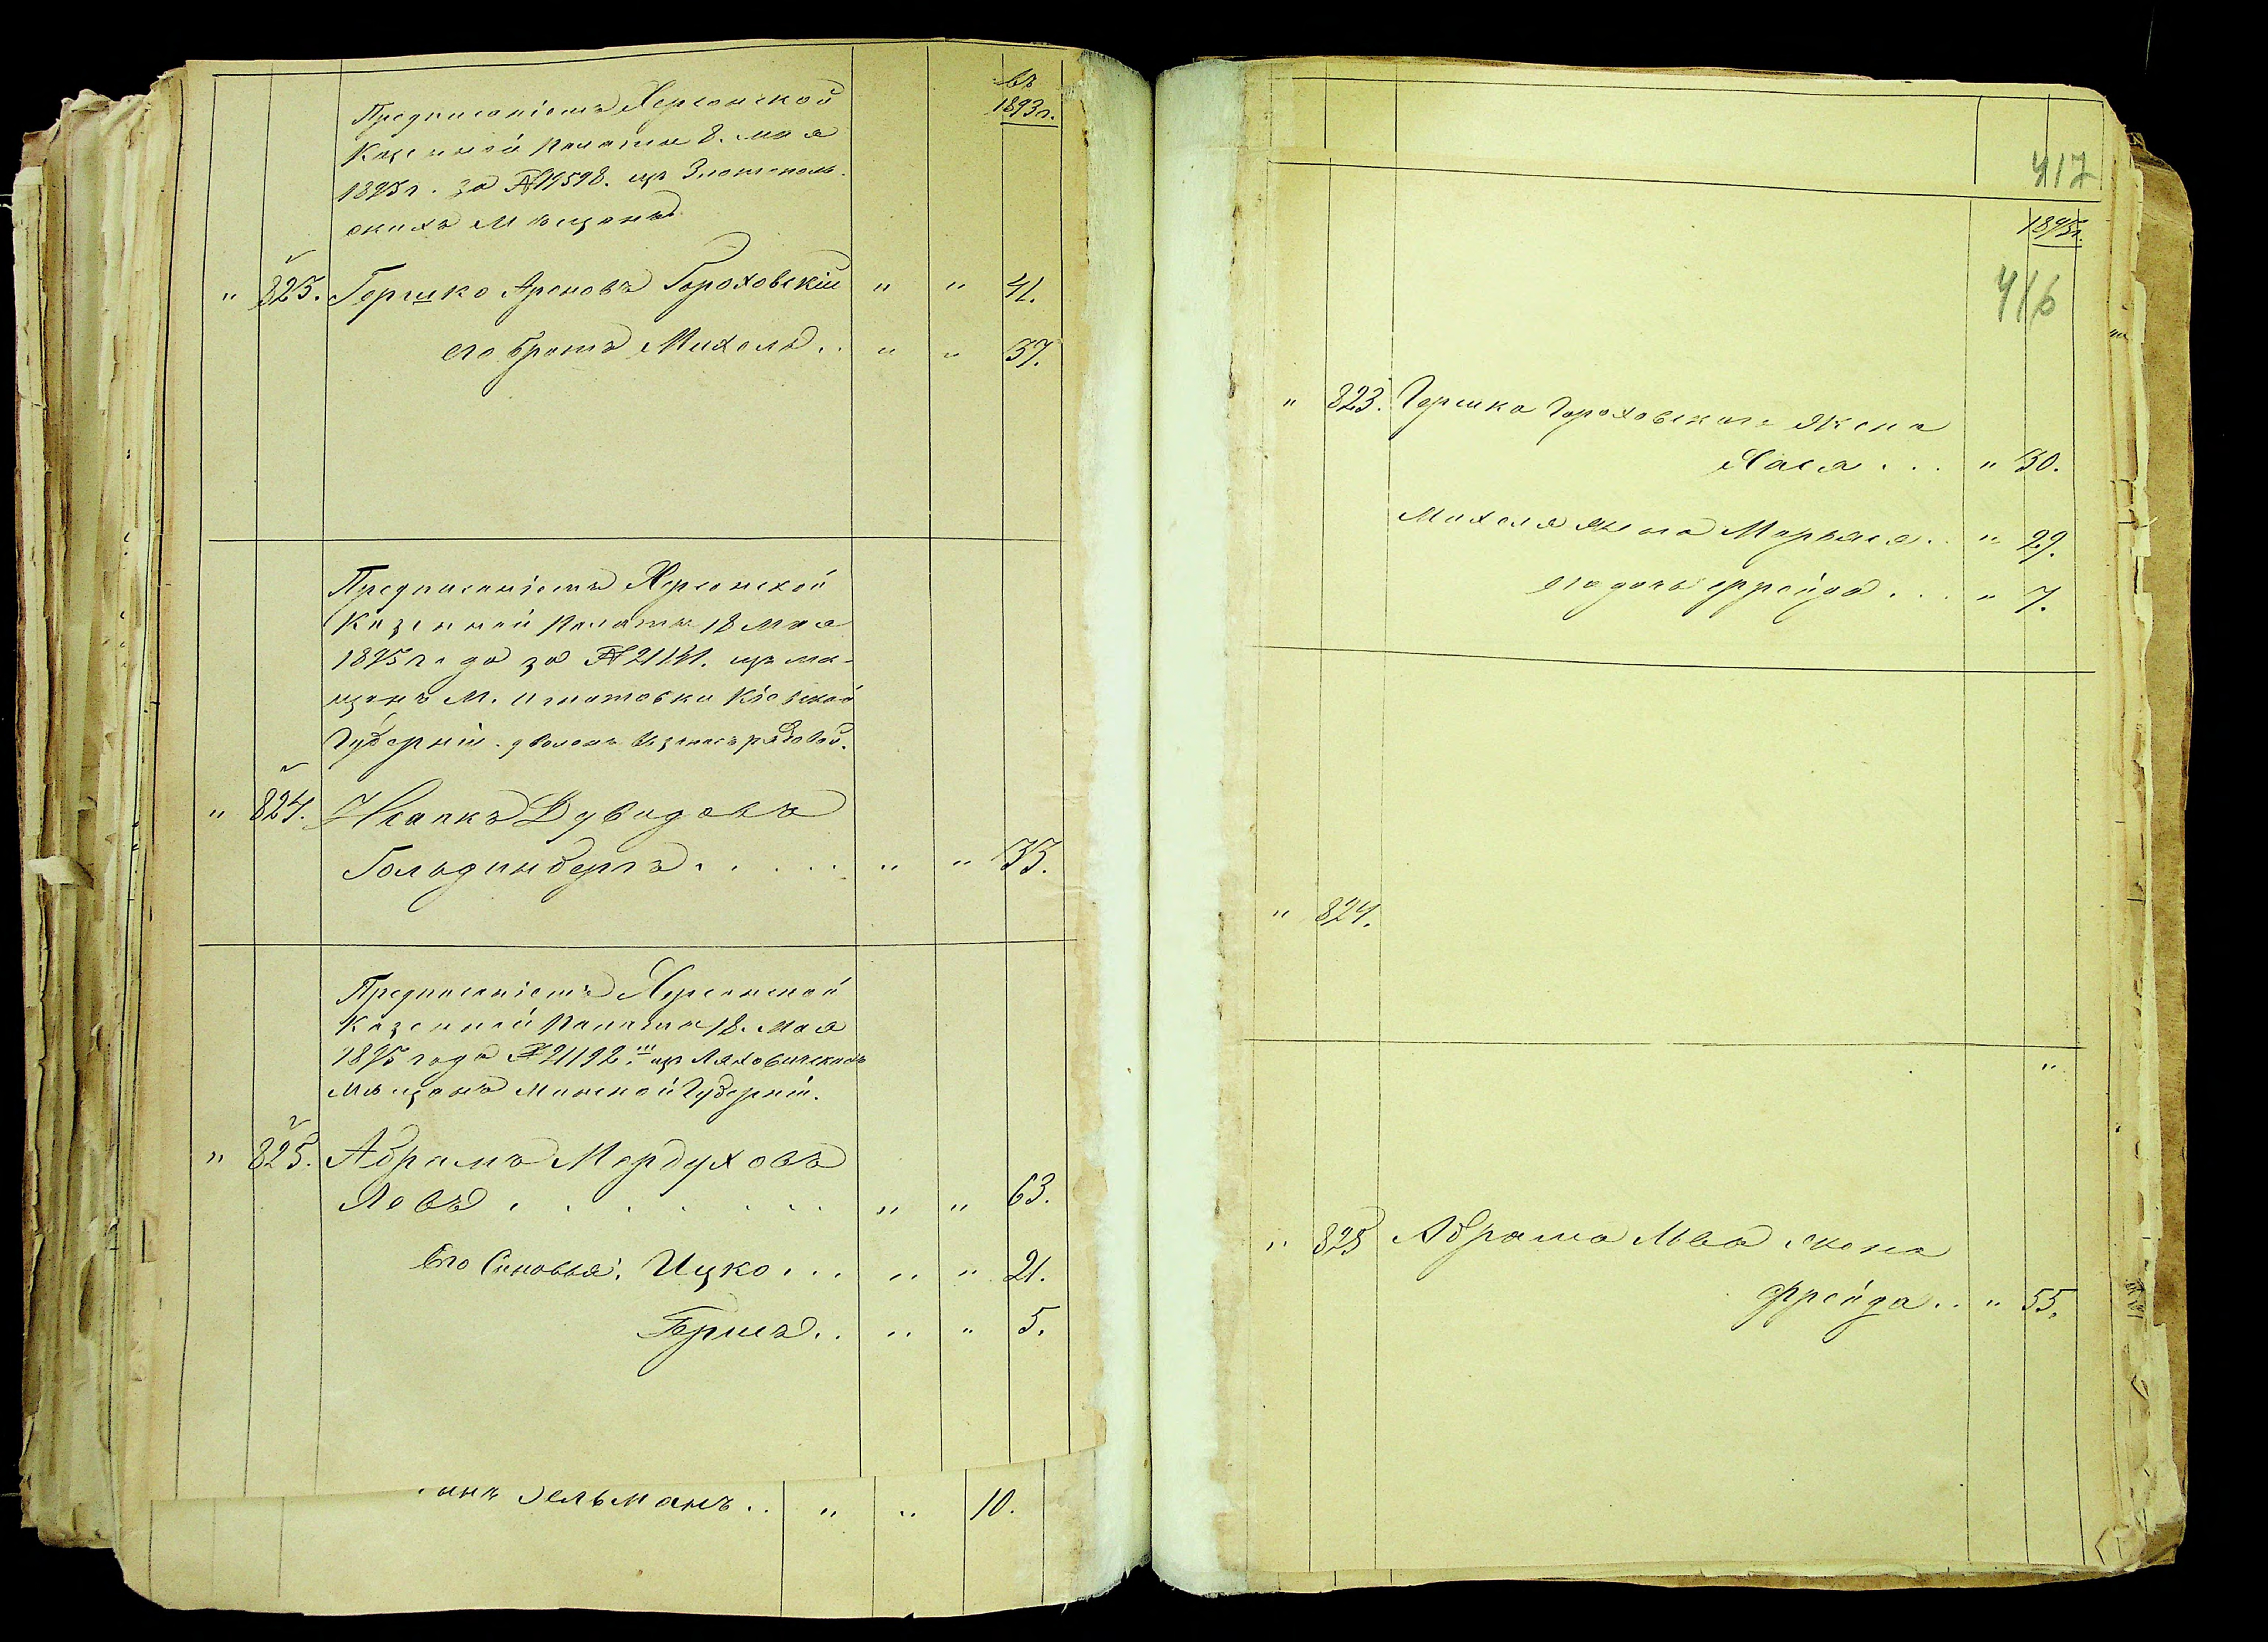 въ
1893 г.
Предписаніемъ Херсонской
Казенной Палаты 8. мая
1893 г. за № 19598. изъ Златополь-
скихъ Мѣщанъ
" 823. Гершко Ароновъ Гороховскій " " 41.
его братъ Михель .. " " 37.
Предписаніемъ Херсонской
Казенной Палаты 18 мая
1893 года за № изъ мѣ-
щанъ М. Игнатовки Кіевской
Губерніи.
" 824. Исаакъ Дувидовъ
Гольдинбергъ . . . . . " " 33.
Предписаніемъ Херсонской
Казенной Палаты 18. мая
1893 года № 21192. изъ Ляховичскихъ
Мѣщанъ Минской Губерніи.
" 825. Абрамъ Мордуховъ
Левъ . . . . . . . " " 63.
Его Сыновья: Ицко ... " " 21.
Гершъ .. " " 5.
Зельманъ .. " " 10.
417
1893 г.
416
" 823. Гершка Гороховскаго жена
Хася ... " 30.
Михеля жена Марьяся .. " 29.
его дочь Фрейда ... " 7.
" 824.
"
" 825 Абрама Льва жена
Фрейда .. " 55.